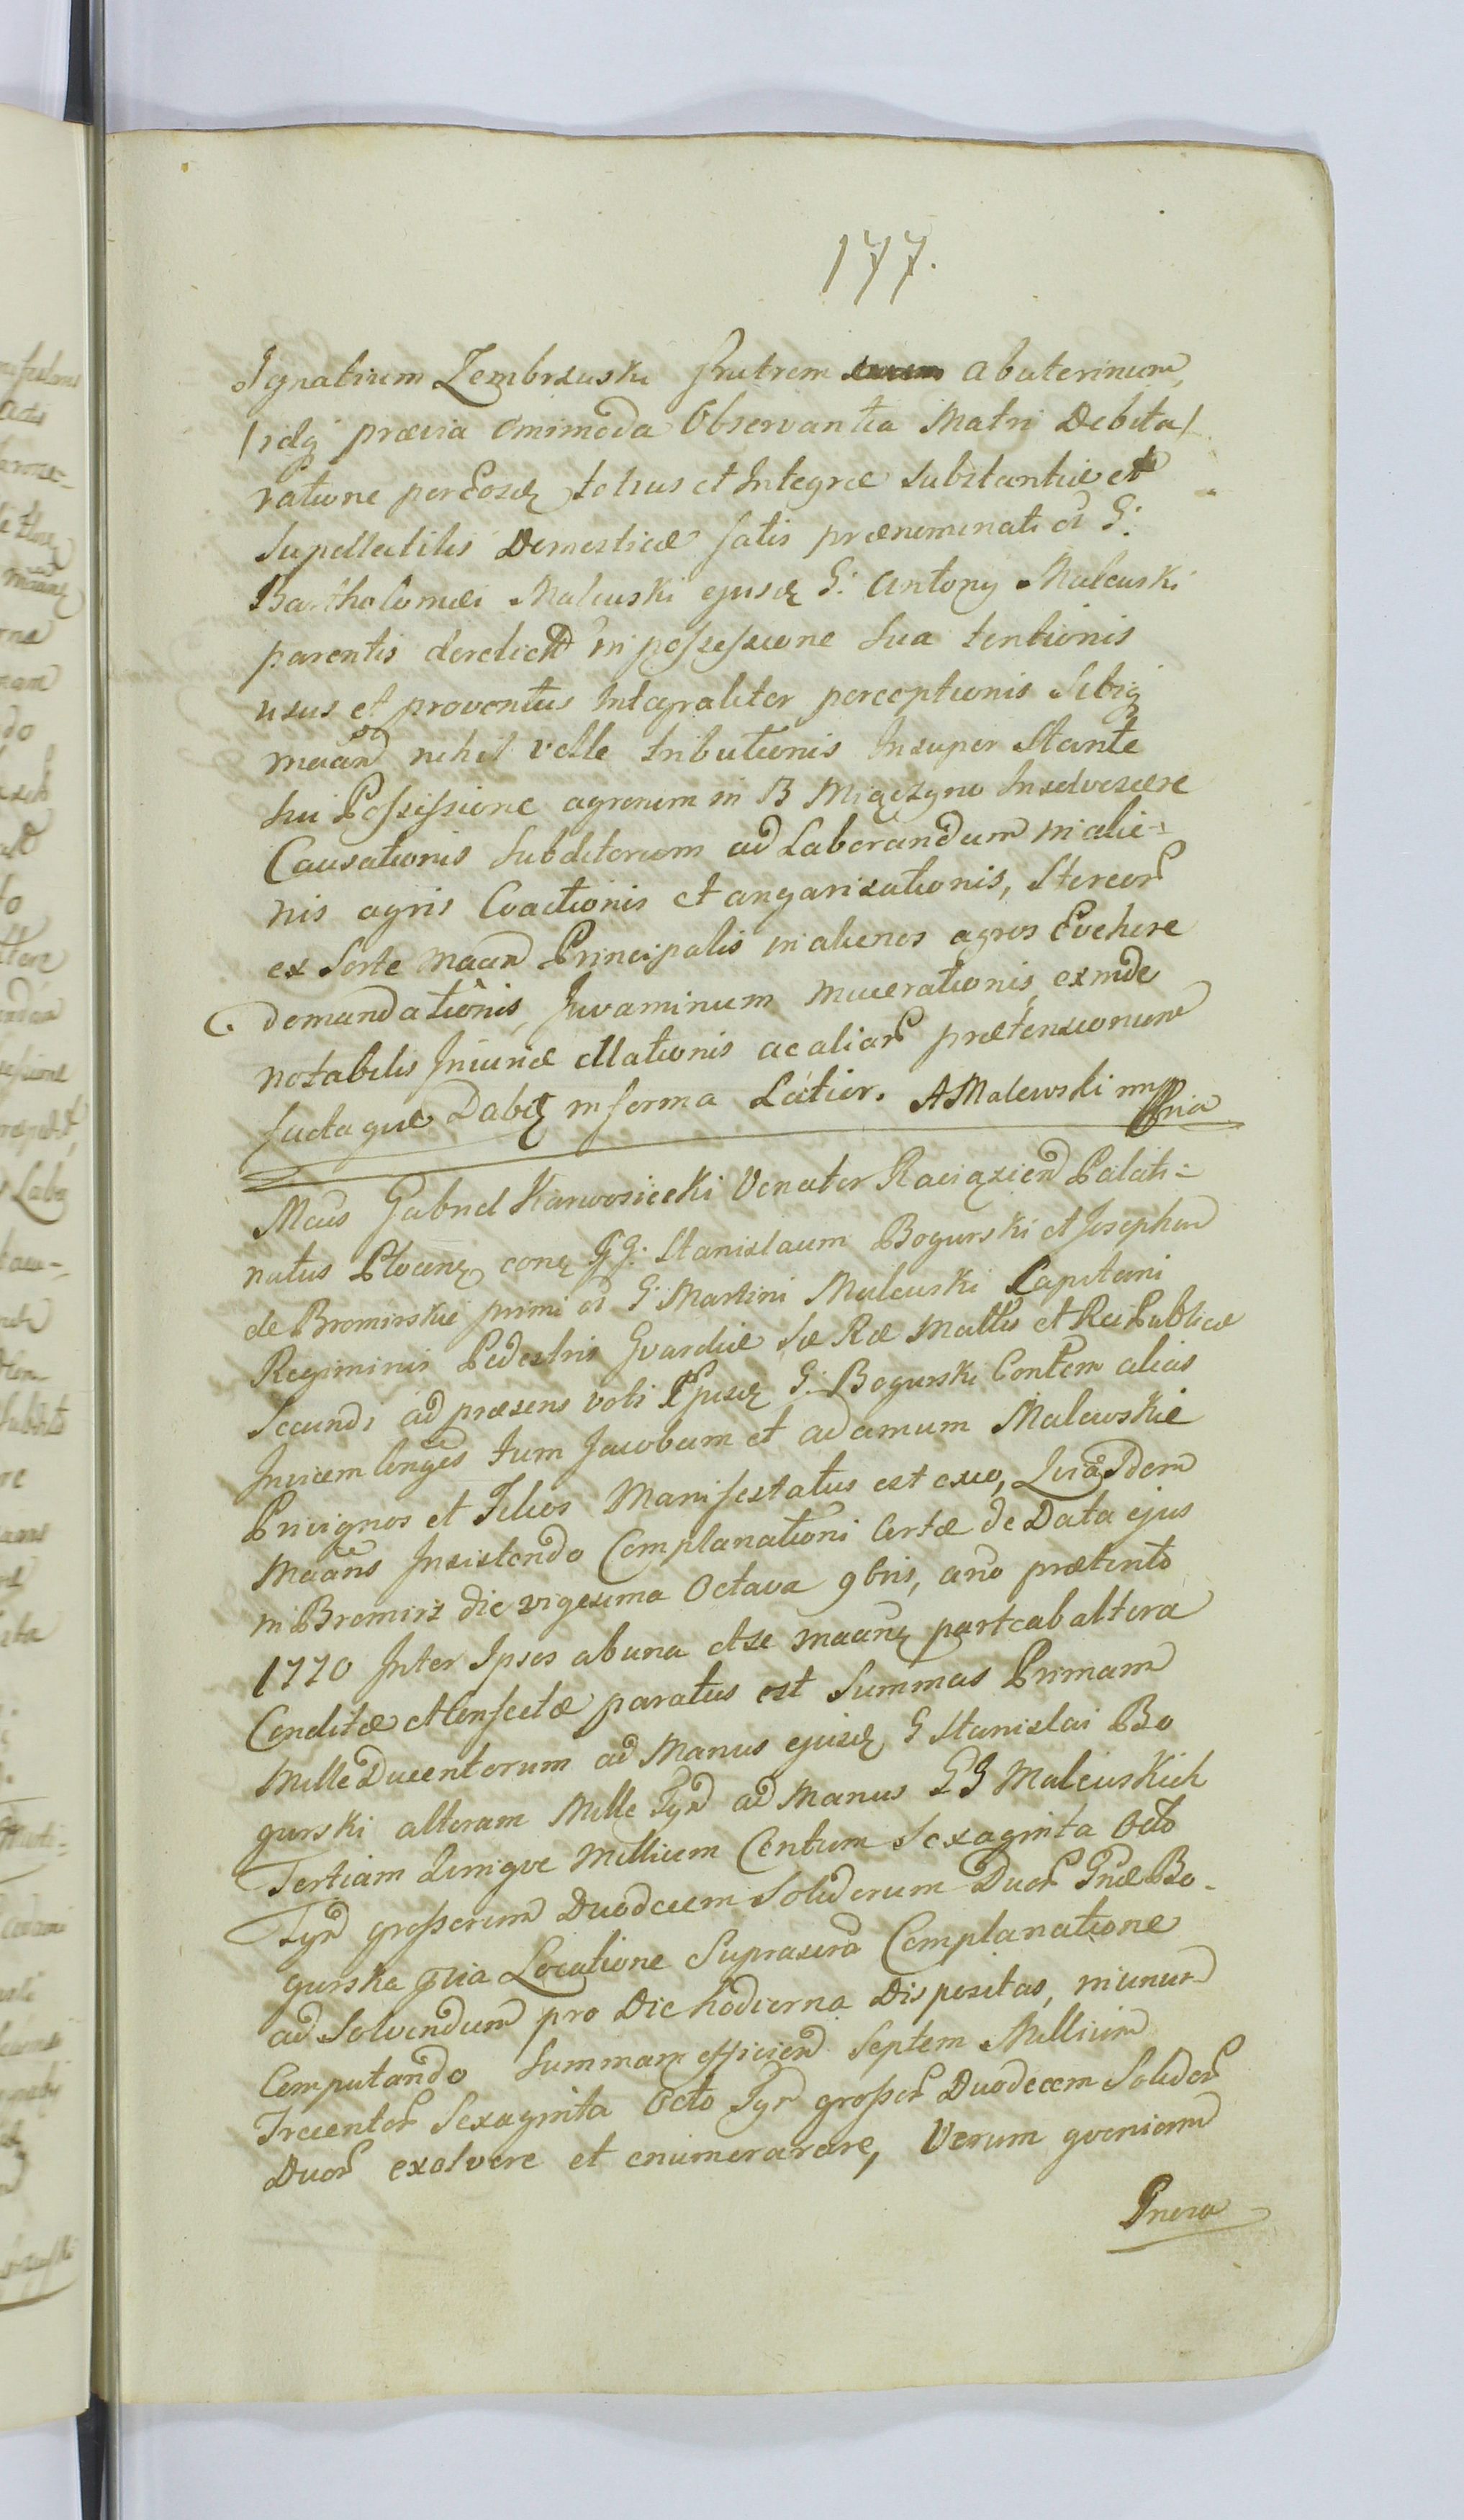 177.
Ignatium Zembrzuski fratrem abuterinum,
/idq praevia omimoda Observantia Matri Debita/
ratione per eosd totius et Integrae substantiae et
Supellectilis Domesticae satis praenominati od G:
Bartholomaei Malewski ejusd G: Antony Malewski
parentis derelict in possessione sua tentionis
usus et proventus Integraliter perceptionis Sibiq
maan nihil velle tributionis Insuper Stante
sui Possessione agrorum in B Miączyno Insolvescere
Causationis subditorum ad Laborandum in alie=
nis agris Coactionis et angarisationis, Stercor
ex Sorte maan Principalis in alienos agros Evehere
demandationis, Juvaminum macerationis, exinde
notabilis Injuriae illationis ac aliar praetensionum
factaque Dabit in forma Latior. AMalewski mppria
Mcus Gabriel Karwosiecki Venator Raciązien Palati=
natus Plocen con GG: Stanislaum Bogurski et Josephum
de Bromirskie primi od G Martini Malewski Capitani
Regiminis Pedestris Gvardiae Sae Rae Mattis et ReiPublicae
Secundi ad praesens voti Ejusd G: Bogurski Contem alias
Invicem Conges tum Jacobum et adamum Malewskie
Privignos et Filios Manifestatus est exeo, Quia Idem
Maans Insistendo Complanationi Certae de Data ejus
in Bromirz die vigesima Octava 9bris, ano praeterito
1770 Inter Ipsos ab una et se maan parte ab altera
Conditae et Confectae paratus est Summas Primam
Mille Ducentorum ad Manus ejusd G Stanislai Bo
gurski alteram Mille Fyn ad Manus GG Malewskich
Tertiam Quinque Millium Centum Sexaginta Octo
Fyn grossorum Duodecem Solidorum Duor Gnae Bo-
gurska pria Locatione Suprascrd Complanatione
ad Solvendum pro Die hodierna Dispositas, in unum
Computando Summam efficien Septem Millium
Trecentor Sexaginta Octo Fyn grossor Duodecem Solidor
Duor exolvere et enumerarare, Verum qvoniam
Gnera